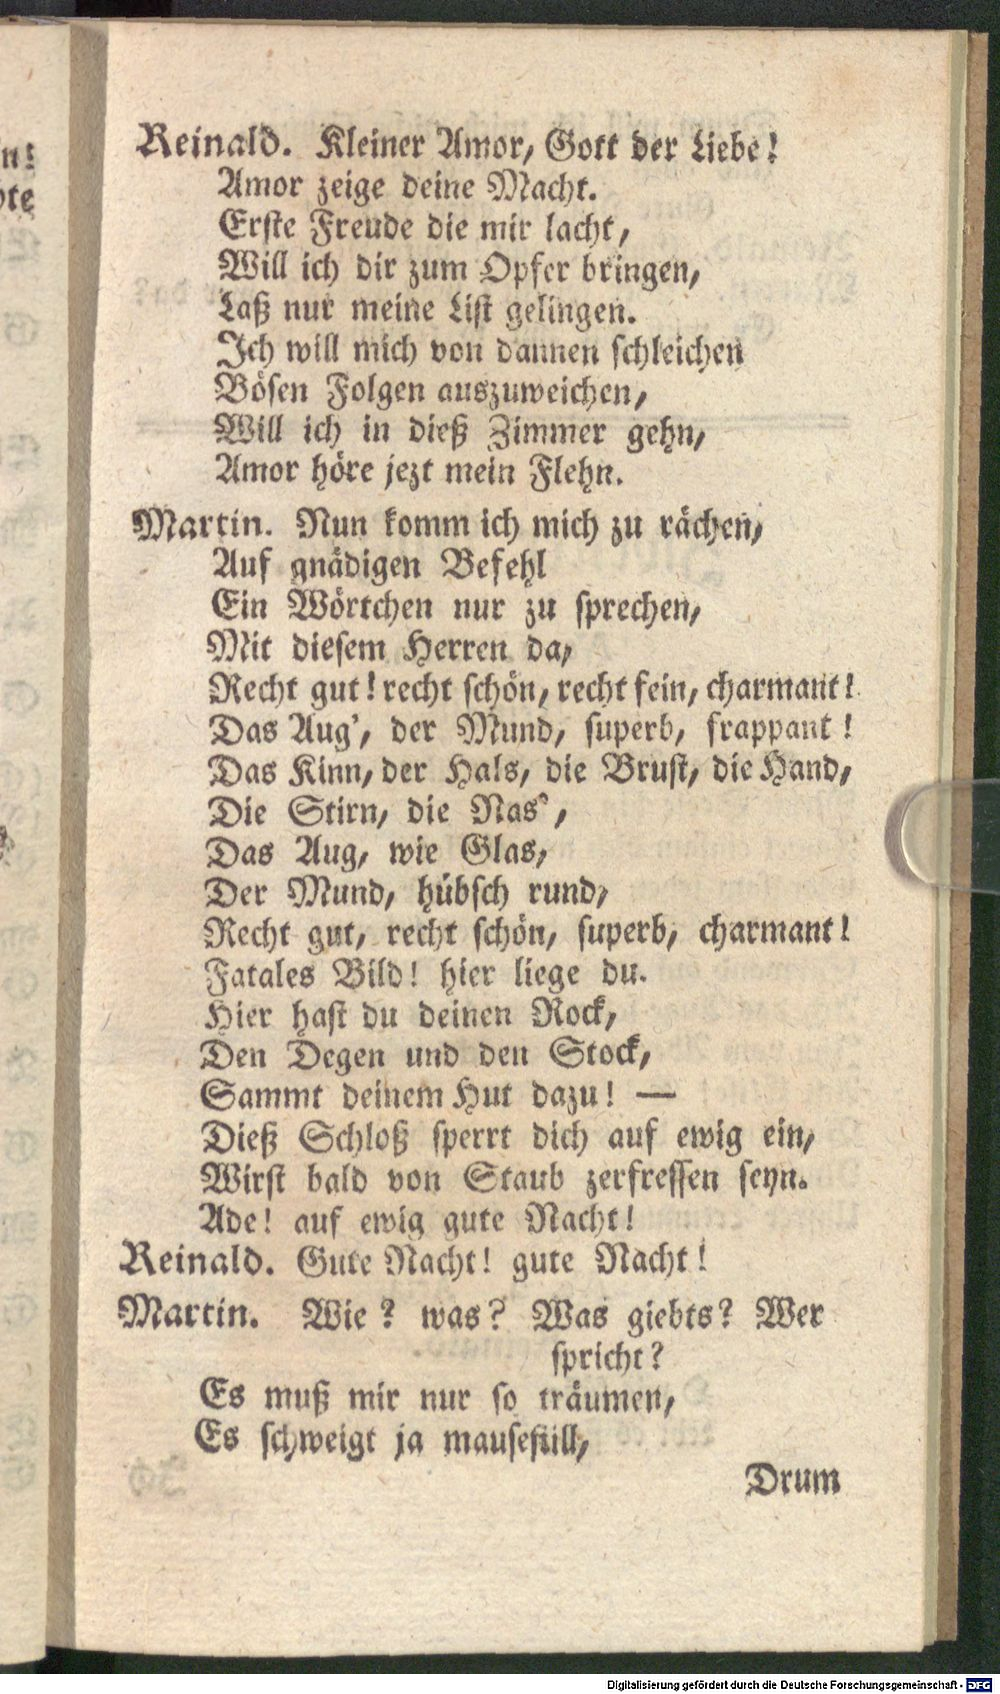 Reinald. Kleiner Amor, Gott der Liebe!
Amor zeige deine Macht.
Erste Freude die mir lacht,
Will ich dir zum Opfer bringen,
Laß nur meine List gelingen.
Ich will mich von dannen schleichen
Bösen Folgen auszuweichen,
Will ich in dieß Zimmer gehn,
Amor höre jezt mein Flehn.
Martin. Nun komm ich mich zu rächen,
Auf gnädigen Befehl
Ein Wörtchen nur zu sprechen,
Mit diesem Herren da,
Recht gut! recht schön, recht fein, charmant!
Das Aug', der Mund, superb, frappant!
Das Kinn, der Hals, die Brust, die Hand,
Die Stirn, die Nas',
Das Aug, wie Glas,
Der Mund, hübsch rund,
Recht gut, recht schön, superb, charmant!
Fatales Bild! hier liege du.
Hier hast du deinen Rock,
Den Degen und den Stock,
Sammt deinem Hut dazu! —
Dieß Schloß sperrt dich auf ewig ein,
Wirst bald von Staub zerfressen seyn.
Ade! auf ewig gute Nacht!
Reinald. Gute Nacht! gute Nacht!
Martin. Wie? was? Was giebts? Wer
spricht?
Es muß mir nur so träumen,
Es schweigt ja mausestill,
Drum
Digitalisierung gefördert durch die Deutsche Forschungsgemeinschaft - DFG